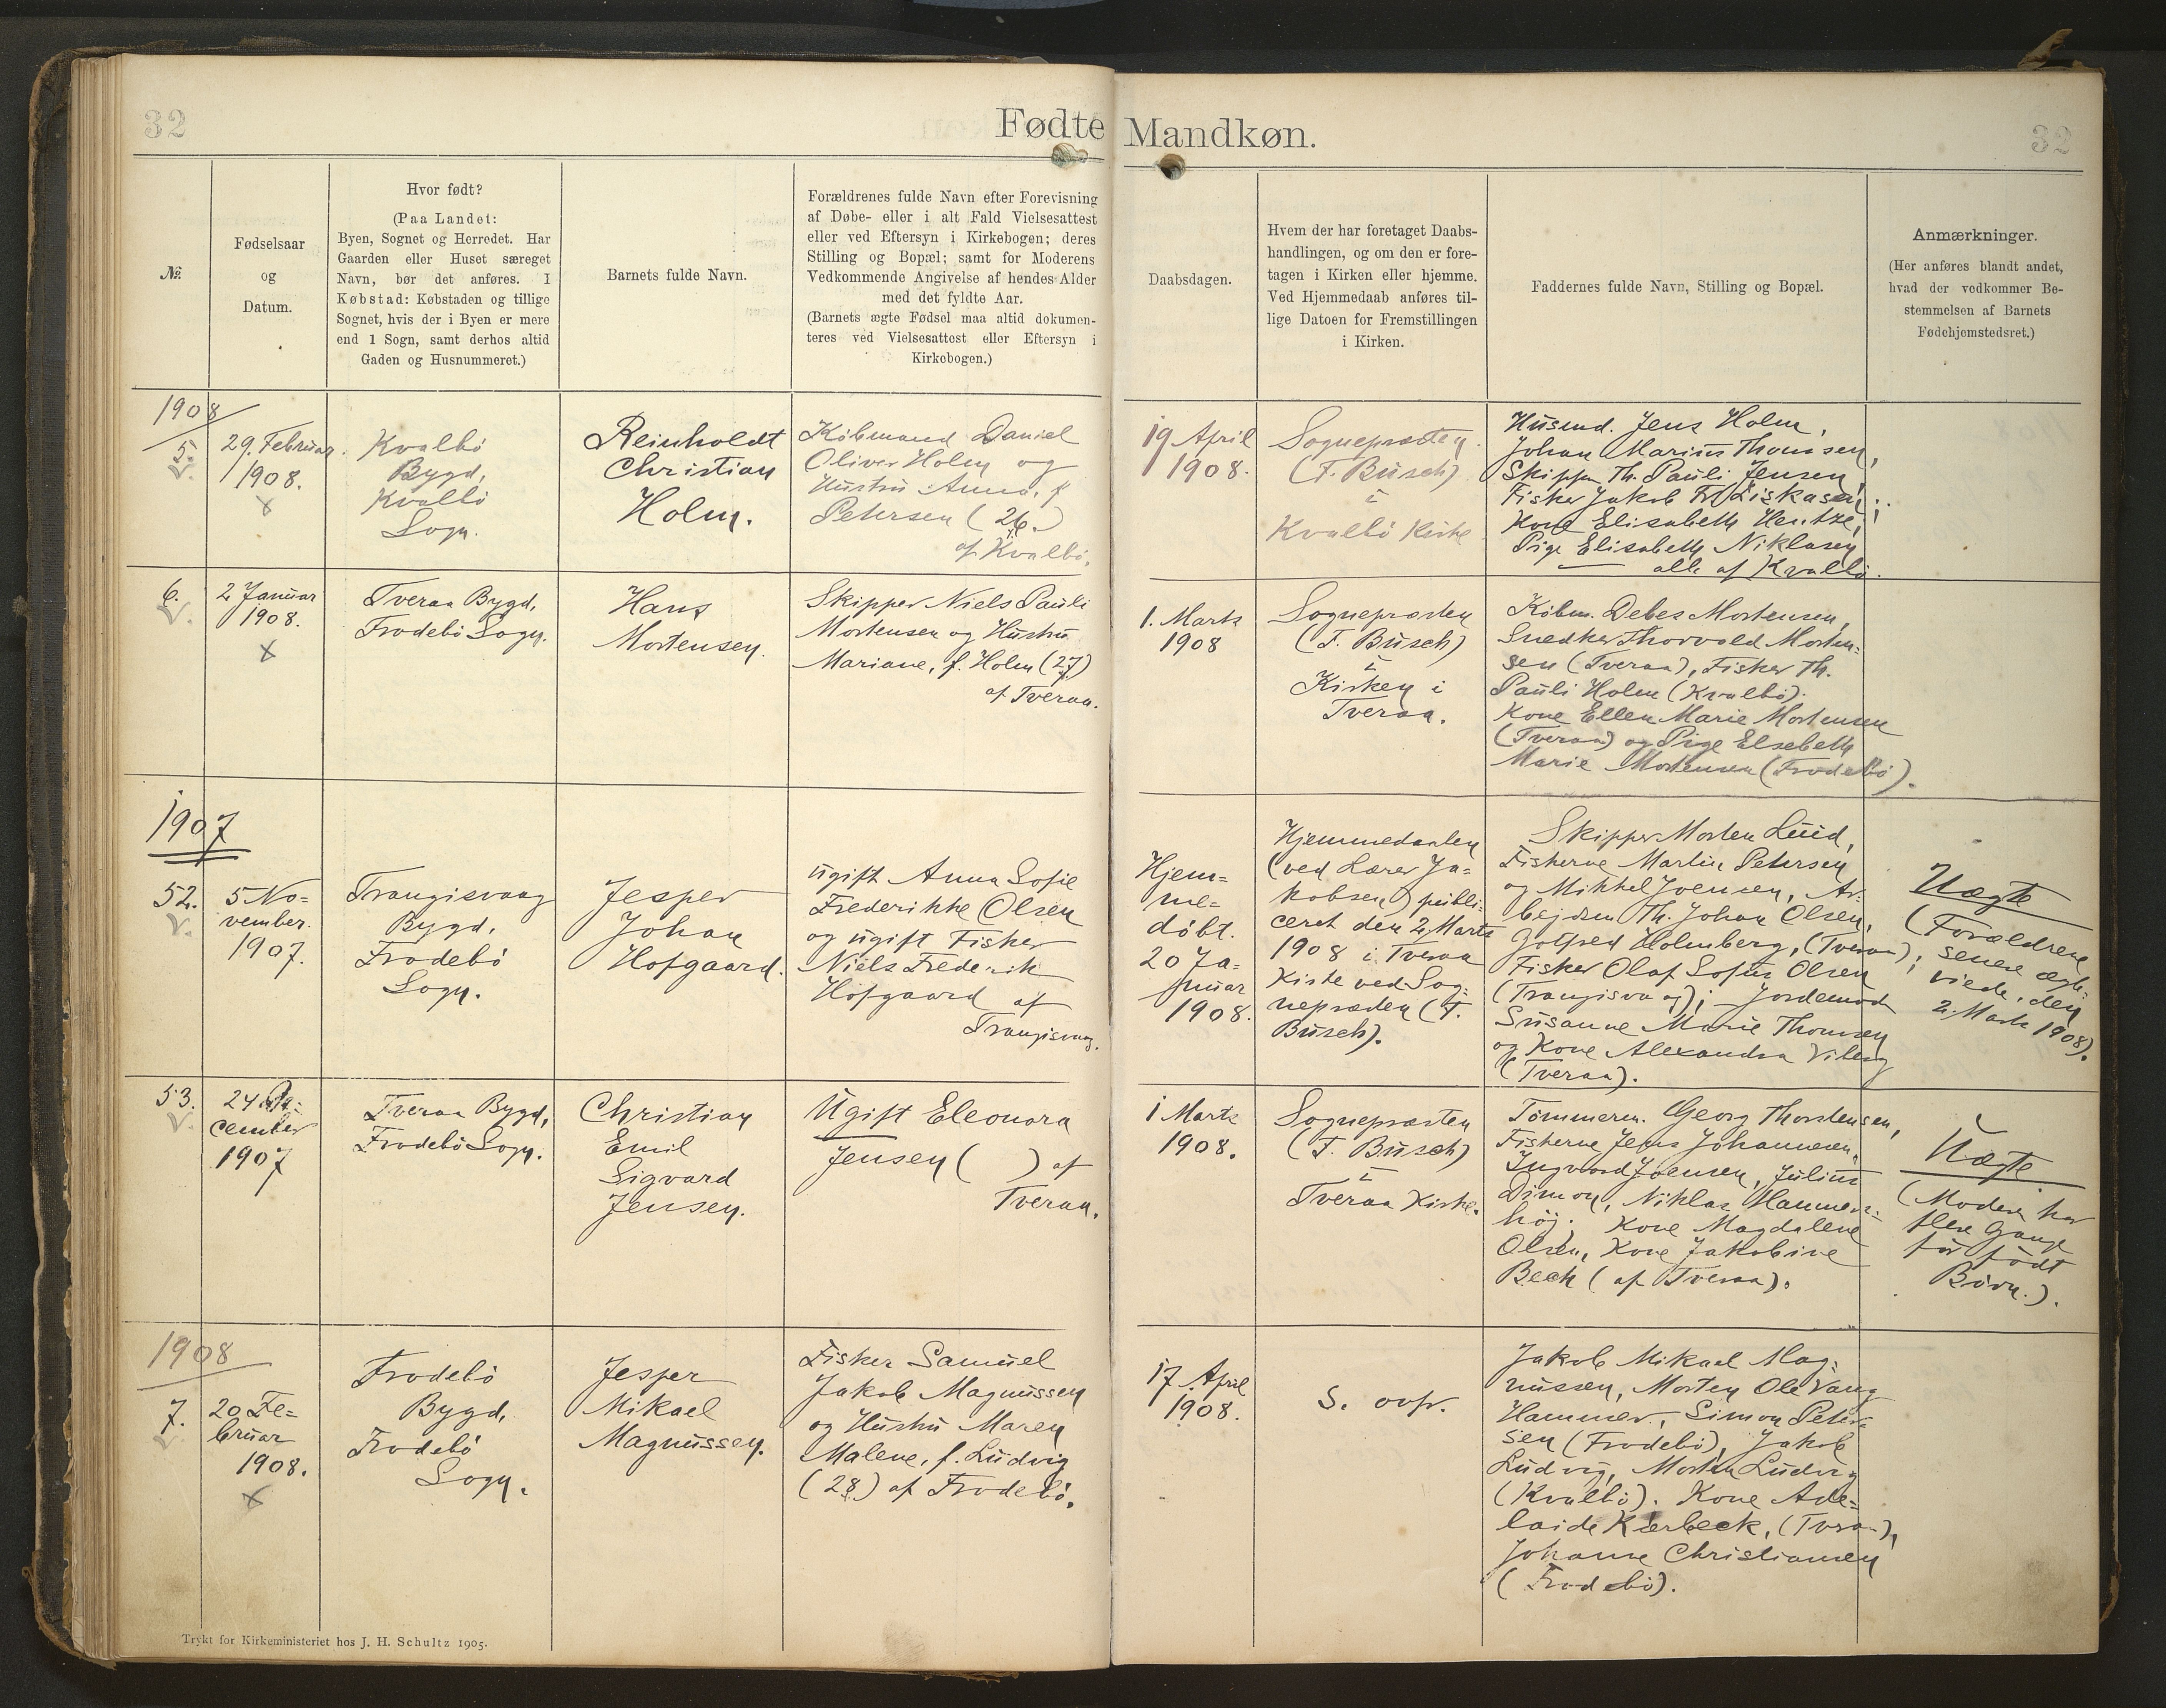 32
Fødte Mandkøn.
32
№
Fødselsaar
og
Datum.
Hvor født?
(Paa Landet:
Byen, Sognet og Herredet. Har
Gaarden eller Huset særeget
Navn, bør det anføres. I
Købstad: Købstaden og tillige
Sognet, hvis der i Byen er mere
end 1 Sogn, samt derhos altid
Gaden og Husnummeret.)
Barnets fulde Navn.
Forældrenes fulde Navn efter Forevisning
af Døbe- eller i alt Fald Vielsesattest
eller ved Eftersyn i Kirkebogen; deres
Stilling og Bopæl; samt for Moderens
Vedkommende Angivelse af hendes Alder
med det fyldte Aar.
(Barnets ægte Fødsel maa altid dokumen-
teres ved Vielsesattest eller Eftersyn i
Kirkebogen.)
Daabsdagen.
Hvem der har foretaget Daabs-
handlingen, og om den er fore-
tagen i Kirken eller hjemme.
Ved Hjemmedaab anføres til-
lige Datoen for Fremstillingen
i Kirken.
Faddernes fulde Navn, Stilling og Bopæl.
Anmærkninger.
(Her anføres blandt andet,
hvad der vedkommer Be-
stemmelsen af Barnets
Fødehjemstedsret.)
1908
5.
29. Februar
1908.
Kvalbö
Bygd,
Kvalbö
Sogn.
Reinholdt
Christian
Holm.
Köbmand Daniel
Oliver Holm og
Hustru Anna, f.
Petersen (26.)
af Kvalbö.
19 April
1908.
Sognepræsten
(F. Busch)
i
Kvalbö Kirke
Husmd. Jens Holm,
Johan Marius Thomsen,
Skipper Th. Pauli Jensen,
Fisker Jakob Fr.
Kone Elisabeth Hentze,
Pige Elisabeth Niklasen
alle af Kvalbö.
6.
2 Januar
1908.
Tveraa Bygd,
Frodebö Sogn.
Hans
Mortensen.
Skipper Niels Pauli
Mortensen og Hustru
Mariane, f. Holm (27)
af Tveraa.
1. Marts
1908
Sognepræsten
(F. Busch)
i
Kirken i
Tveraa.
Köbm. Debes Mortensen,
Snedker Thorvald Morten=
sen (Tveraa), Fisker Th.
Pauli Holm (Kvalbö).
Kone Ellen Marie Mortensen
(Tveraa) og Pige Elsebeth
Marie Mortensen (Frodebö).
1907
52.
5 No=
vember.
1907.
Trangisvaag
Bygd,
Frodebö
Sogn.
Jesper
Johan
Hofgaard.
Ugift Anna Sofie
Frederikke Olsen
og ugift Fisker
Niels Frederik
Hofgaard af
Trangisvaag.
Hjem=
me=
döbt.
20 Ja=
nuar
1908.
Hjemmedaaben
(ved Lærer Ja=
kobsen) publi=
ceret den 2. Marts
1908 i Tveraa
Kirke ved Sog=
nepræsten (F.
Busch).
Skipper Morten Lüid,
Fiskerne Martin Petersen
og Mikkel Joensen, Ar=
bejdsm Th. Johan Olsen,
Gotfred Holmberg, (Tveraa);
Fisker Olaf Sofus Olsen
(Trangisvaag); Jordemod
Susanne Marie Thomsen
og Kone Alexandra Viberg
(Tveraa).
Uægte
(Forældrene
senere ægte=
viede, den
2. Marts 1908).
53.
24 De=
cember
1907
Tveraa Bygd,
Frodebö Sogn.
Christian
Emil
Sigvard
Jensen.
Ugift Eleonora
Jensen ( ) af
Tveraa.
1 Marts
1908.
Sognepræsten
(F. Busch)
i
Tveraa Kirke.
Tömmerm. Georg Thorstensen,
Fiskerne Jens Johannesen,
Ingvard Joensen, Julius
Dimon, Niklas Hammers=
höj. Kone Magdalene
Olsen, Kone Jakobine
Bech (af Tveraa).
Uægte
(Moderen har
flere Gange
för födt
Börn.).
1908
7.
20 Fe=
bruar
1908.
Frodebö
Bygd,
Frodebö
Sogn.
Jesper
Mikael
Magnussen.
Fisker Samuel
Jakob Magnussen
og Hustru Maren
Malene, f. Ludvig
(28) af Frodebö.
17 April
1908.
S. ovf.
Jakob Mikael Mag=
nussen, Morten Ole Vang
Hammer, Simon Peter=
sen (Frodebö), Jakob
Ludvig, Morten Ludvig
(Kvalbö). Kone Ade=
laide Kjerbeck, (Tvraa),
Johanne Christiansen
(Frodebö).
Trykt for Kirkeministeriet hos J. H. Schultz 1905.